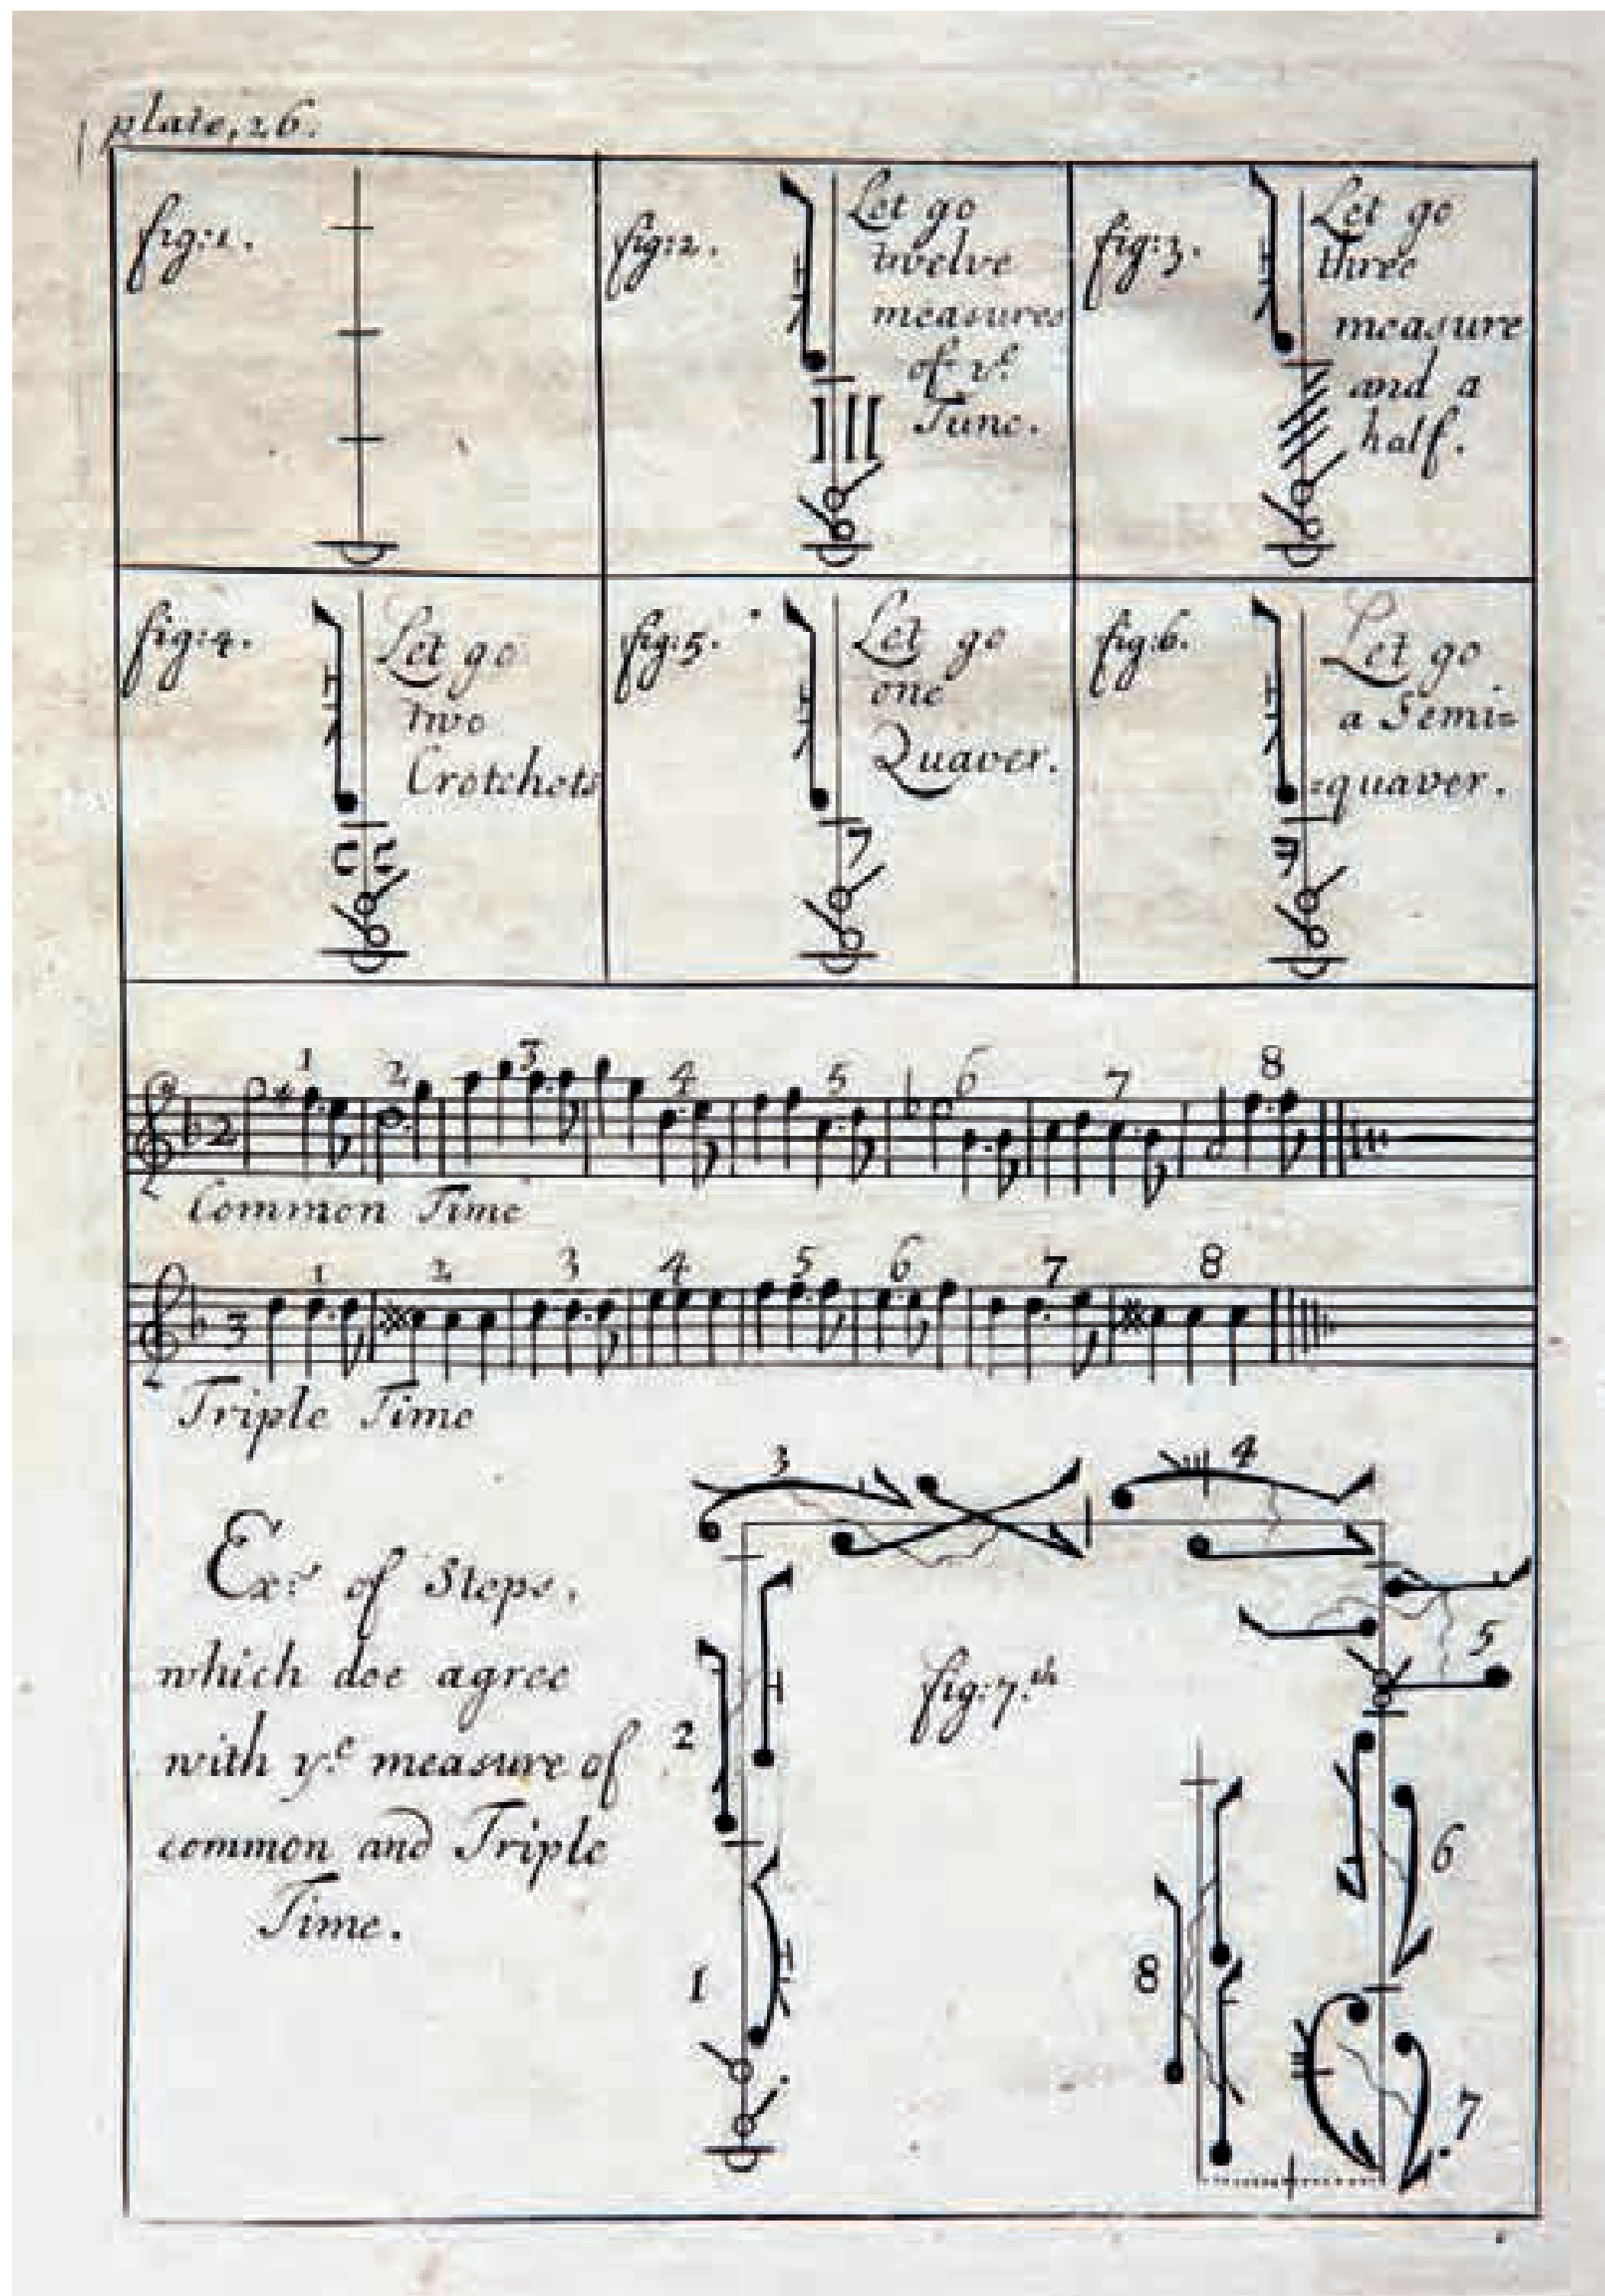 plate, 26.
fig: 1.
fig: 2.
Let go
twelve
measures
of yᵉ
Tune.
fig: 3.
Let go
three
measure
and a
half.
fig: 4.
Let go
two
Crotchets
fig: 5.
Let go
one
Quaver.
fig: 6.
Let go
a Semi=
=quaver.
1 2 3 4 5 6 7 8
2
Common Time
1 2 3 4 5 6 7 8
3
Triple Time
Exʳ of Steps,
which doe agree
with yᵉ measure of
common and Triple
Time.
fig: 7.ᵗʰ
3
4
2
5
6
1
8
7.